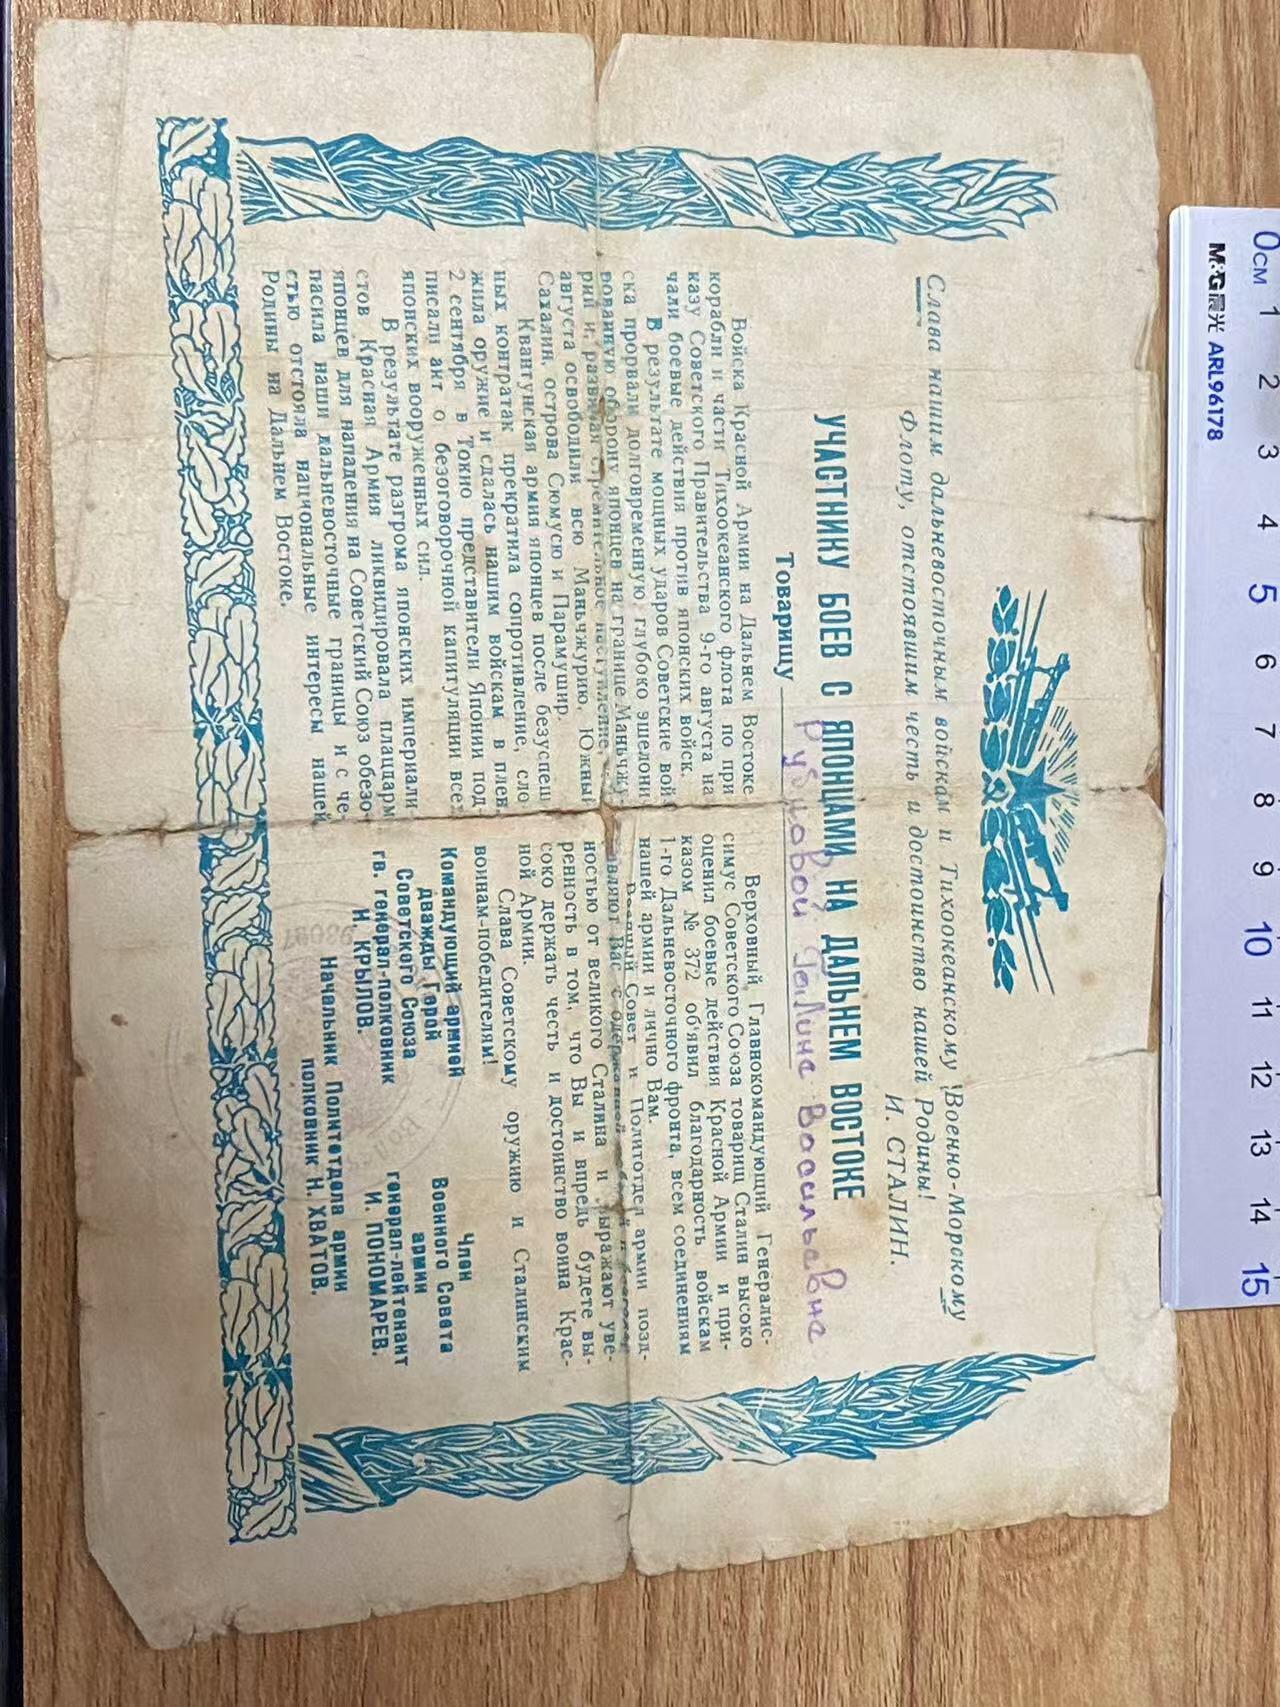 Слава нашим дальневосточным войскам и Тихоокеанскому Военно-Морскому
Флоту, отстоявшим честь и достоинство нашей Родины!
И. СТАЛИН.
УЧАСТНИКУ БОЕВ С ЯПОНЦАМИ НА ДАЛЬНЕМ ВОСТОКЕ
Товарищу Рубцовой Галине Васильевне
Войска Красной Армии на Дальнем Востоке
корабли и части Тихоокеанского флота по при
казу Советского Правительства 9-го августа на
чали боевые действия против японских войск.
В результате мощных ударов Советские вой
ска прорвали долговременную, глубоко эшелони
рованную оборону японцев на границе Маньчжу
рии и, развивая стремительное наступление,
августа освободили всю Маньчжурию, Южный
Сахалин, острова Сюмусю и Парамушир.
Квантунская армия японцев после безуспеш
ных контратак прекратила сопротивление, сло
жила оружие и сдалась нашим войскам в плен
2 сентября в Токио представители Японии под
писали акт о безоговорочной капитуляции всех
японских вооруженных сил.
В результате разгрома японских империали
стов Красная Армия ликвидировала плацдарм
японцев для нападения на Советский Союз обезо
пасила наши дальневосточные границы и с че
стью отстояла национальные интересы нашей
Родины на Дальнем Востоке.
Верховный Главнокомандующий Генералис-
симус Советского Союза товарищ Сталин высоко
оценил боевые действия Красной Армии и при-
казом № 372 об'явил благодарность войскам
1-го Дальневосточного фронта, всем соединениям
нашей армии и лично Вам.
Военный Совет и Политотдел армии позд-
равляют Вас с одержанной победой и
ностью от великого Сталина и выражают уве-
ренность в том, что Вы и впредь будете вы-
соко держать честь и достоинство воина Крас-
ной Армии.
Слава Советскому оружию и Сталинским
воинам-победителям!
Командующий армией
дважды Герой
Советского Союза
гв. генерал-полковник
Н. КРЫЛОВ.
Член
Военного Совета
армии
генерал-лейтенант
И. ПОНОМАРЕВ.
Начальник Политотдела армии
полковник Н. ХВАТОВ.
0CM 1 2 3 4 5 6 7 8 9 10 11 12 13 14 15
M&G晨光 ARL96178